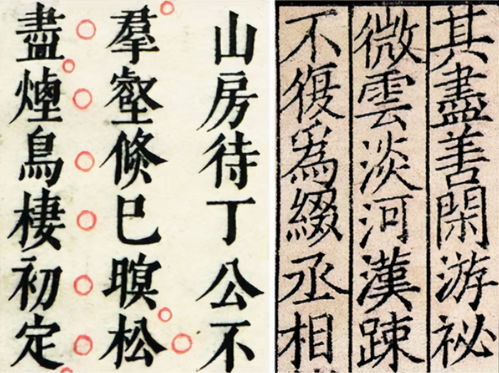 山房待丁公不
羣壑倐巳暝松
盡煙鳥棲初定
其盡善閑游祕
微雲淡河漢踈
不復為綴丞相